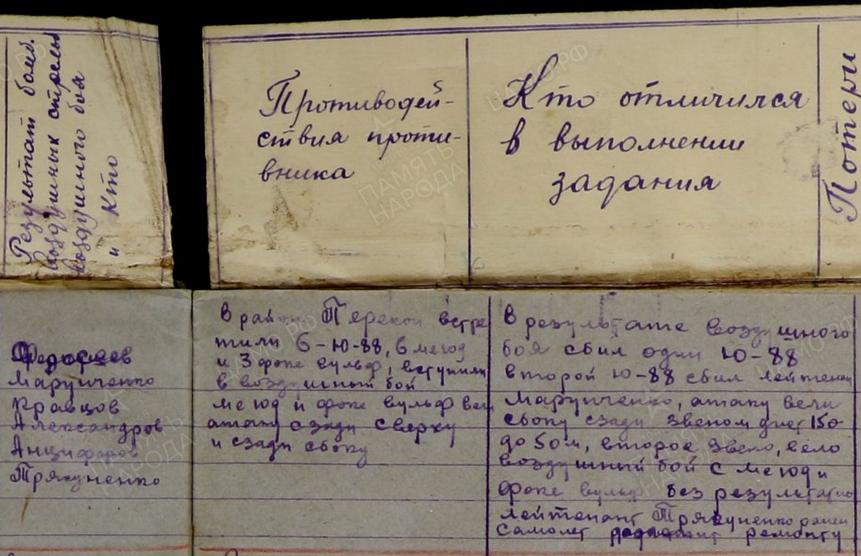 Результат бомб.
воздушных стрельб
воздушного боя
и Кто
Противодей-
ствия проти-
вника
Кто отличился
в выполнении
задания
Потери
Марунченко
Кравцов
Александров
Анциферов
Трякуненко
В район Перекоп встре
тили 6-Ю-88, 6 мегод
и 3 фоке вульф, вступили
в воздушный бой
мегод и фоке вульф вели
атаку сзади сверху
и сзади сбоку
В результате воздушного
боя сбил один Ю-88
второй Ю-88 сбил лейтенан
Марунченко, атаку вели
сбоку сзади звеном 150
до 50м, второе звено, вело
воздушный бой с мегод и
фоке вульф без результатно
лейтенант Трякуненко ранен
самолет ремонту